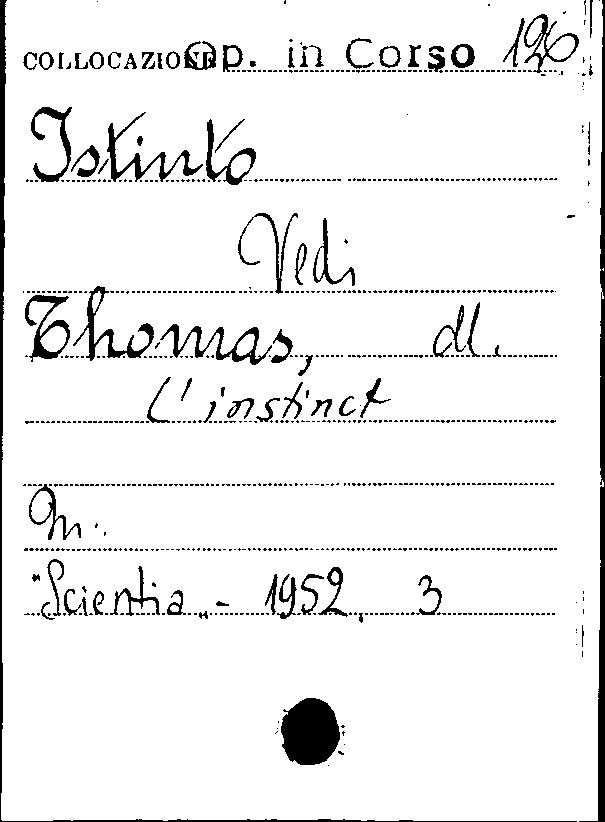 COLLOCAZIONE Op. in Corso 126
Istinto
Vedi
Thomas, M.
L'instinct
In:
"Scientia„ - 1952, 3